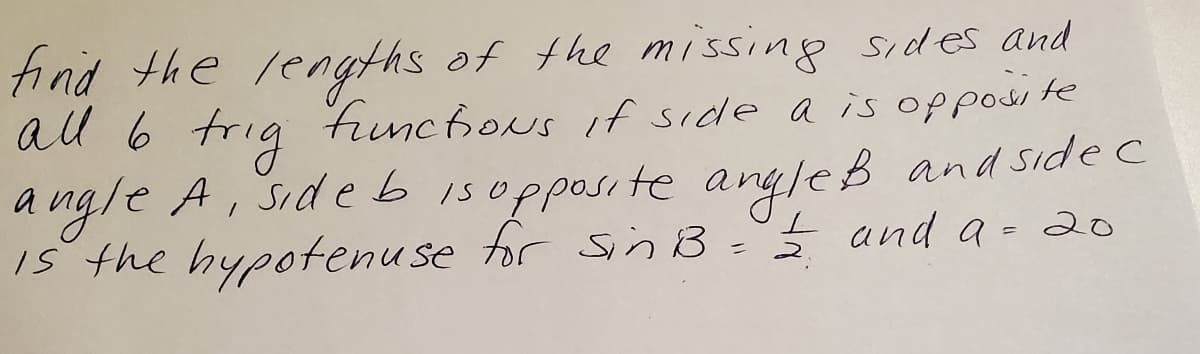 find the lengths of the missing sides and
all 6 trig functions if side a is opposite
angle A, side b is opposite angle B and side c
is the hypotenuse for sin B = 1/2 and a = 20